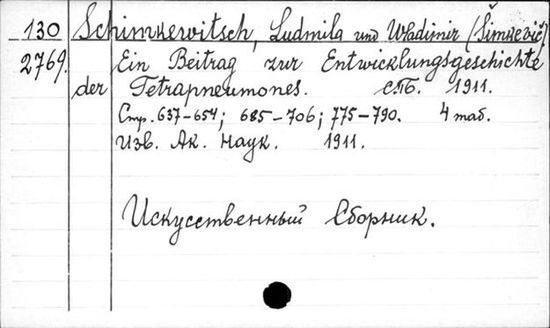 130 Schimkewitsch, Ludmila und Wladimir (Šimkevič)
2769. Ein Beitrag zur Entwicklungsgeschichte
der Tetrapneumones. СПб. 1911.
Стр. 637-654; 685-706; 775-790. 4 таб.
Изв. Ак. Наук. 1911.
Искусственный Сборник.